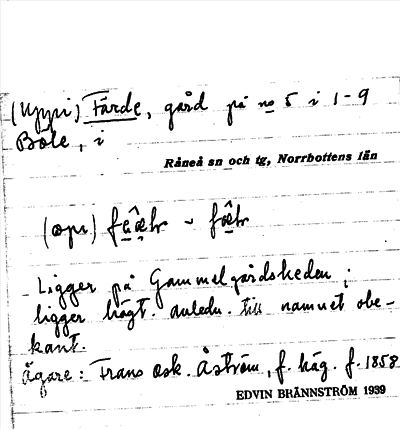 (Uppi) Färde, gård på no 5 i 1-9
Böle, i
Råneå sn och tg, Norrbottens län
Ligger på Gammelgårdsheden;
ligger högt. anledn. till namnet obe-
kant.
Ägare: Frans Osk. Åström, f. häg. f. 1858
EDVIN BRÄNNSTRÖM 1939